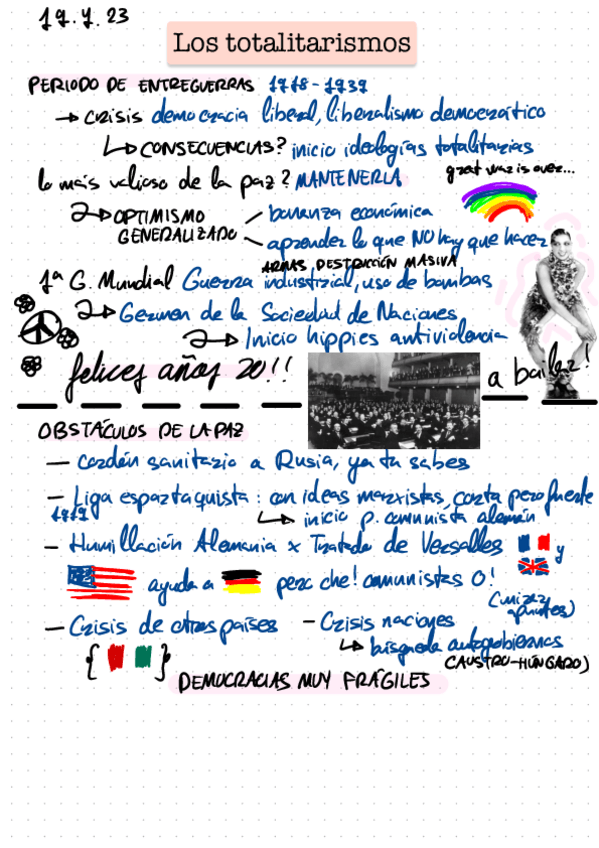 19.4.23
Los totalitarismos
PERIODO DE ENTREGUERRAS 1918-1939
→ crisis democracia liberal, liberalismo democrático
↳ CONSECUENCIAS? inicio ideologías totalitarias
lo más valioso de la paz? MANTENERLA
great war is over...
→ OPTIMISMO GENERALIZADO
bonanza económica
aprender lo que NO hay que hacer
ARMAS DESTRUCCIÓN MASIVA
1ª G. Mundial Guerra industrial, uso de bombas
→ Germen de la Sociedad de Naciones
→ Inicio hippies antiviolencia
felices años 20!!
a bailar!
OBSTÁCULOS DE LA PAZ
— cordón sanitario a Rusia, ya tu sabes
— Liga espartaquista: con ideas marxistas, corta pero fuerte
1919
↳ inicio p. comunista alemán
— Humillación Alemania x Tratado de Versalles y
ayuda a pero che! comunistas 0!
(mirar apuntes)
— Crisis de otros países
— Crisis naciones
↳ búsqueda autogobiernos
(AUSTRO-HÚNGARO)
{ }
DEMOCRACIAS MUY FRÁGILES